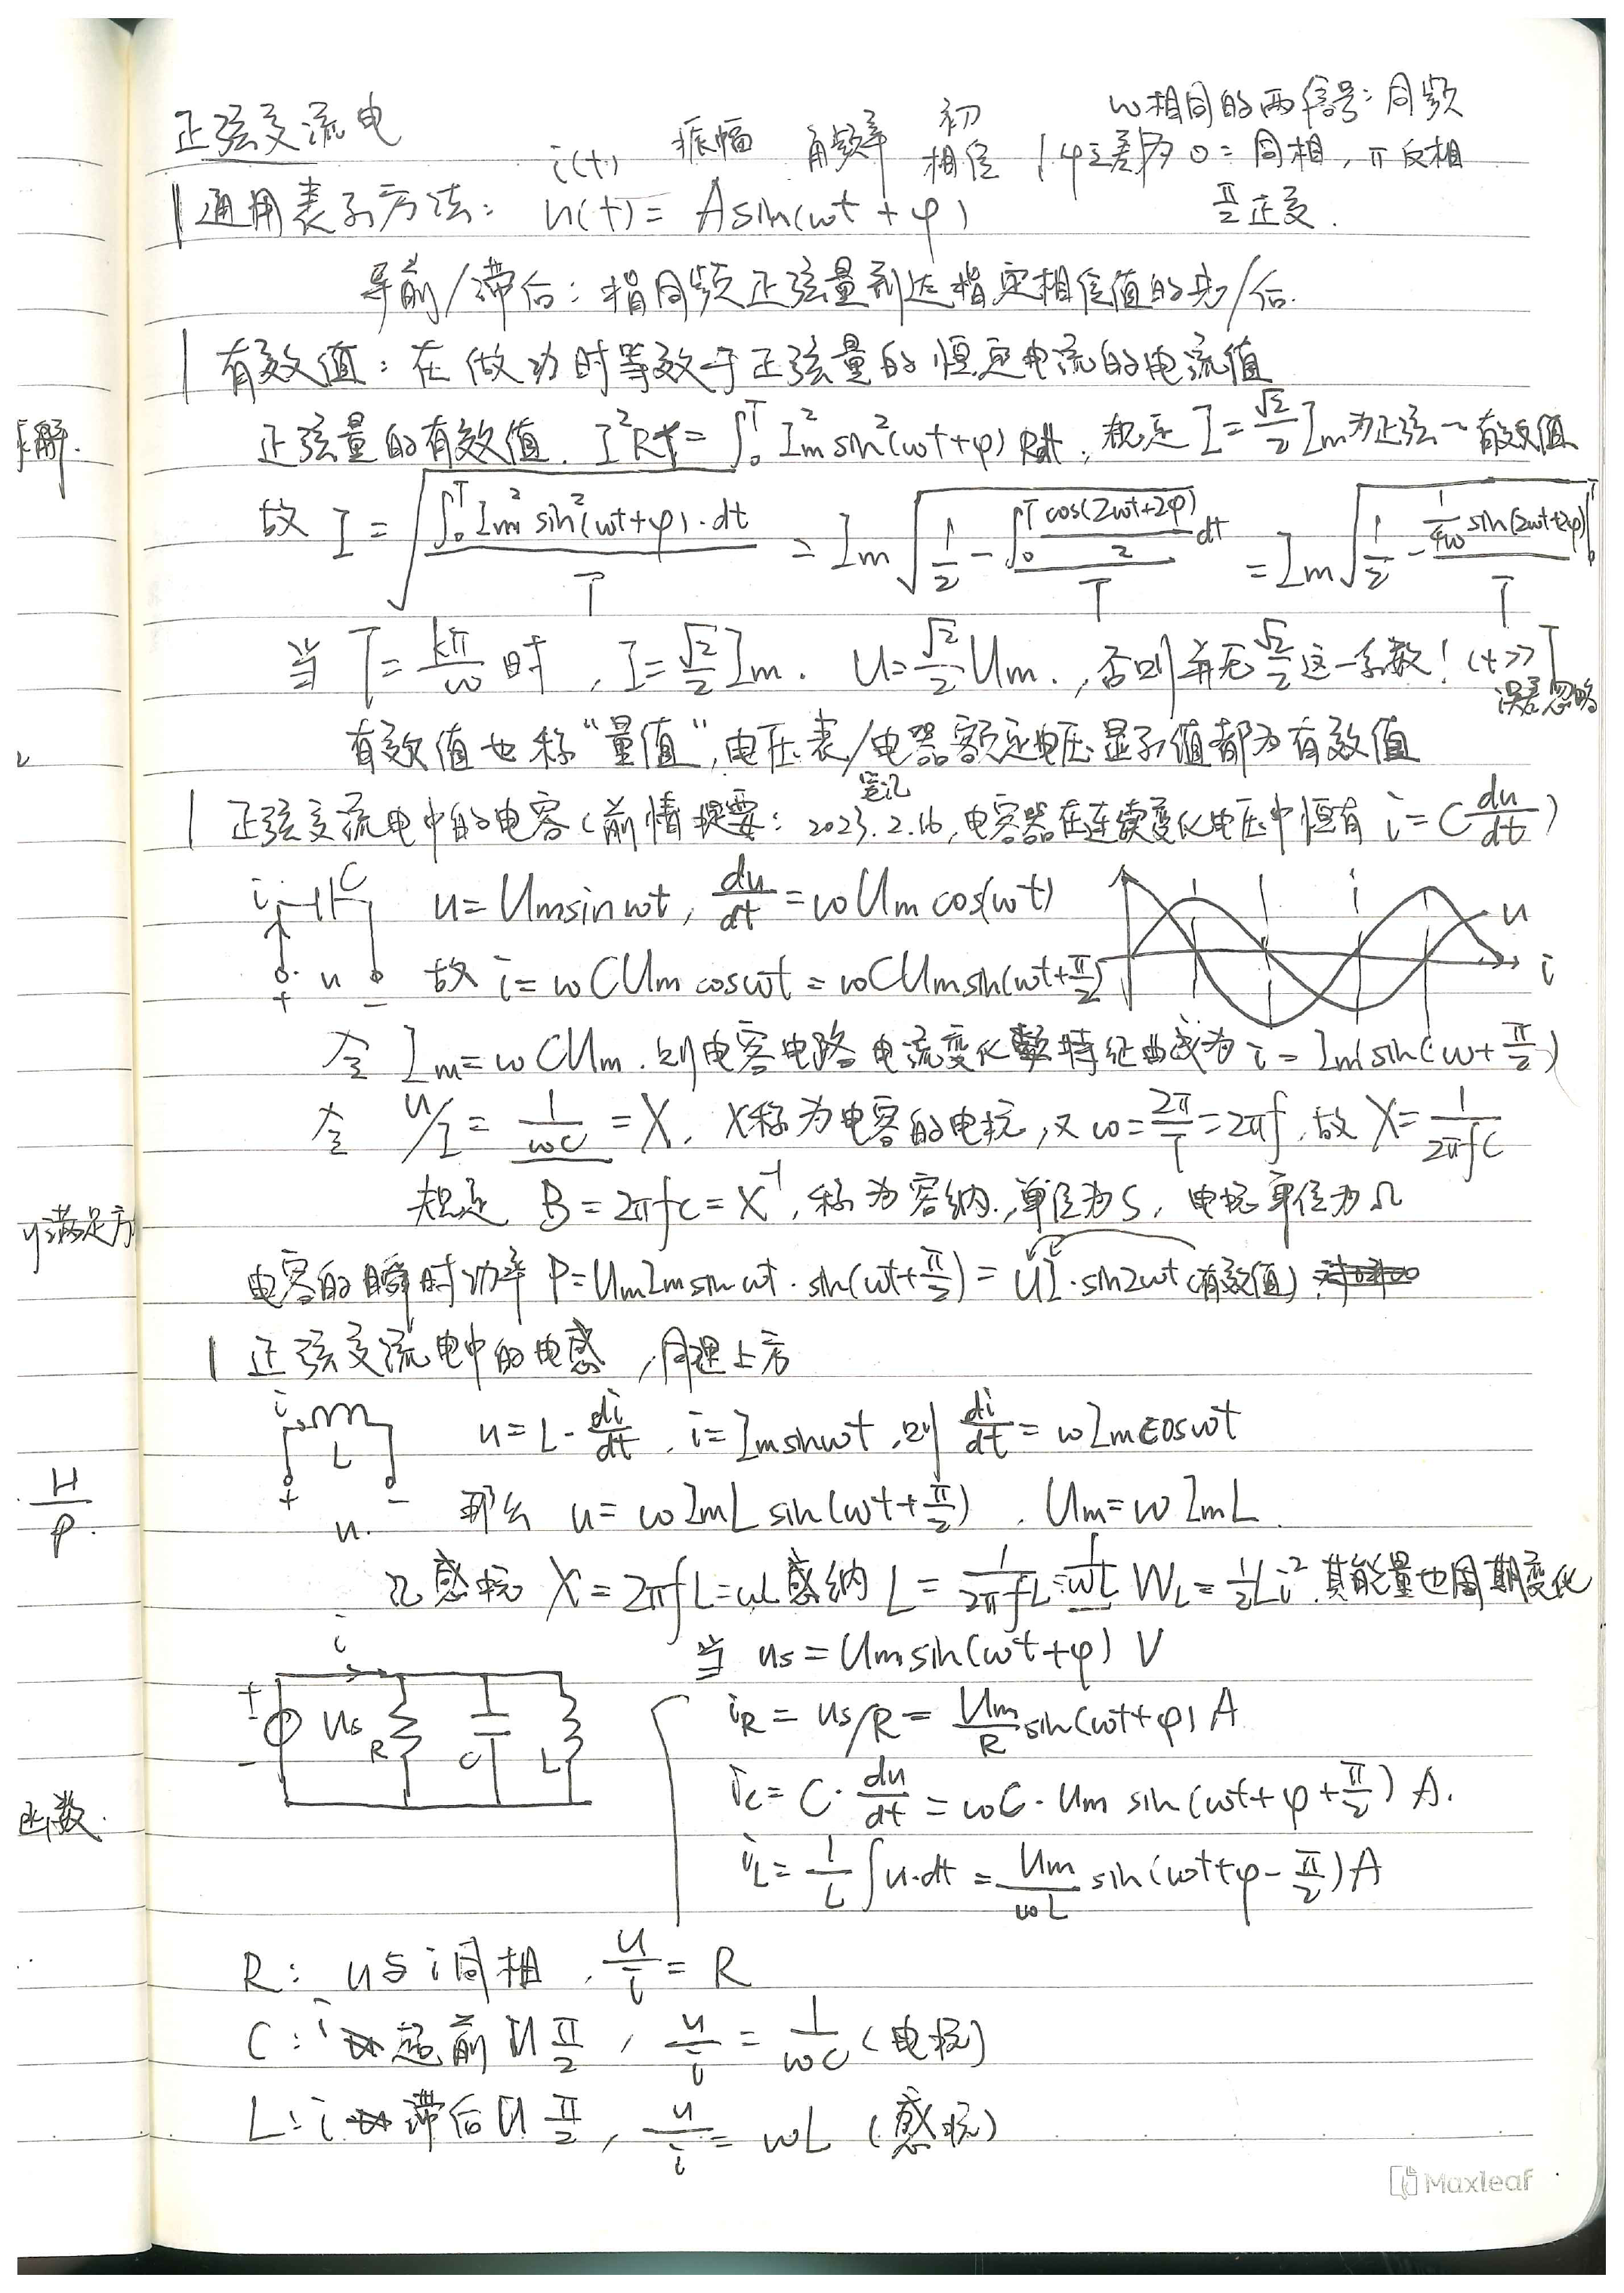 正弦交流电
ω相同的两信号:同频
i(t) 振幅 角频率 初相位 | φ之差为0:同相, π反相
通用表示方法: u(t) = A sin(ωt + φ) π/2 正交.
导前/滞后:指同频正弦量到达指定相位值的先/后.
有效值:在做功时等效于正弦量的恒定电流的电流值
正弦量的有效值. I²RT = ∫₀ᵀ Im² sin²(ωt+φ) Rdt, 规定 I = √2/2 Im 为正弦~有效值
故 I = √(∫₀ᵀ Im² sin²(ωt+φ)·dt / T) = Im √(1/2 - ∫₀ᵀ cos(2ωt+2φ)/2 dt / T) = Im √(1/2 - 1/4ω sin(2ωt+2φ)|₀ᵀ / T)
当 T = kπ/ω 时, I = √2/2 Im. U = √2/2 Um., 否则并无 √2/2 这一系数! (t>>T 误差忽略
有效值也称“量值”,电压表/电器额定电压显示值都为有效值
正弦交流电中的电容(前情提要: 2023.2.16,笔记 电容器在连续变化电压中恒有 i = C du/dt)
i C u = Um sin ωt, du/dt = ωUm cos(ωt) i u
+ u - 故 i = ωCUm cosωt = ωCUm sin(ωt+π/2) i
令 Im = ωCUm. 则电容电路电流变化特征曲线为 i = Im sin(ω + π/2)
令 U/I = 1/ωC = X, X称为电容的电抗,又 ω = 2π/T = 2πf, 故 X = 1/2πfC
规定 B = 2πfc = X⁻¹, 称为容纳.,单位为S, 电抗单位为Ω
电容的瞬时功率 P = UmIm sin ωt · sin(ωt+π/2) = UI·sin2ωt (有效值)
正弦交流电中的电感,同理上方
i L u = L·di/dt, i = Im sinωt, 则 di/dt = ωIm cosωt
+ u. - 那么 u = ωImL sin(ωt+π/2). Um = ωImL
记感抗 X = 2πfL = ωL 感纳 L = 1/2πfL = 1/ωL WL = 1/2 Li². 其能量也周期变化
i 当 us = Um sin(ωt+φ) V
+ - Us R C L iR = us/R = Um/R sin(ωt+φ) A
ic = C·du/dt = ωC·Um sin(ωt+φ+π/2) A.
iL = 1/L ∫u·dt = Um/ωL sin(ωt+φ-π/2) A
R: u与i同相, u/i = R
C: i 超前 U π/2, u/i = 1/ωC (电抗)
L: i 滞后 U π/2, u/i = ωL (感抗)
求解.
y满足方
H/P.
函数.
Maxleaf